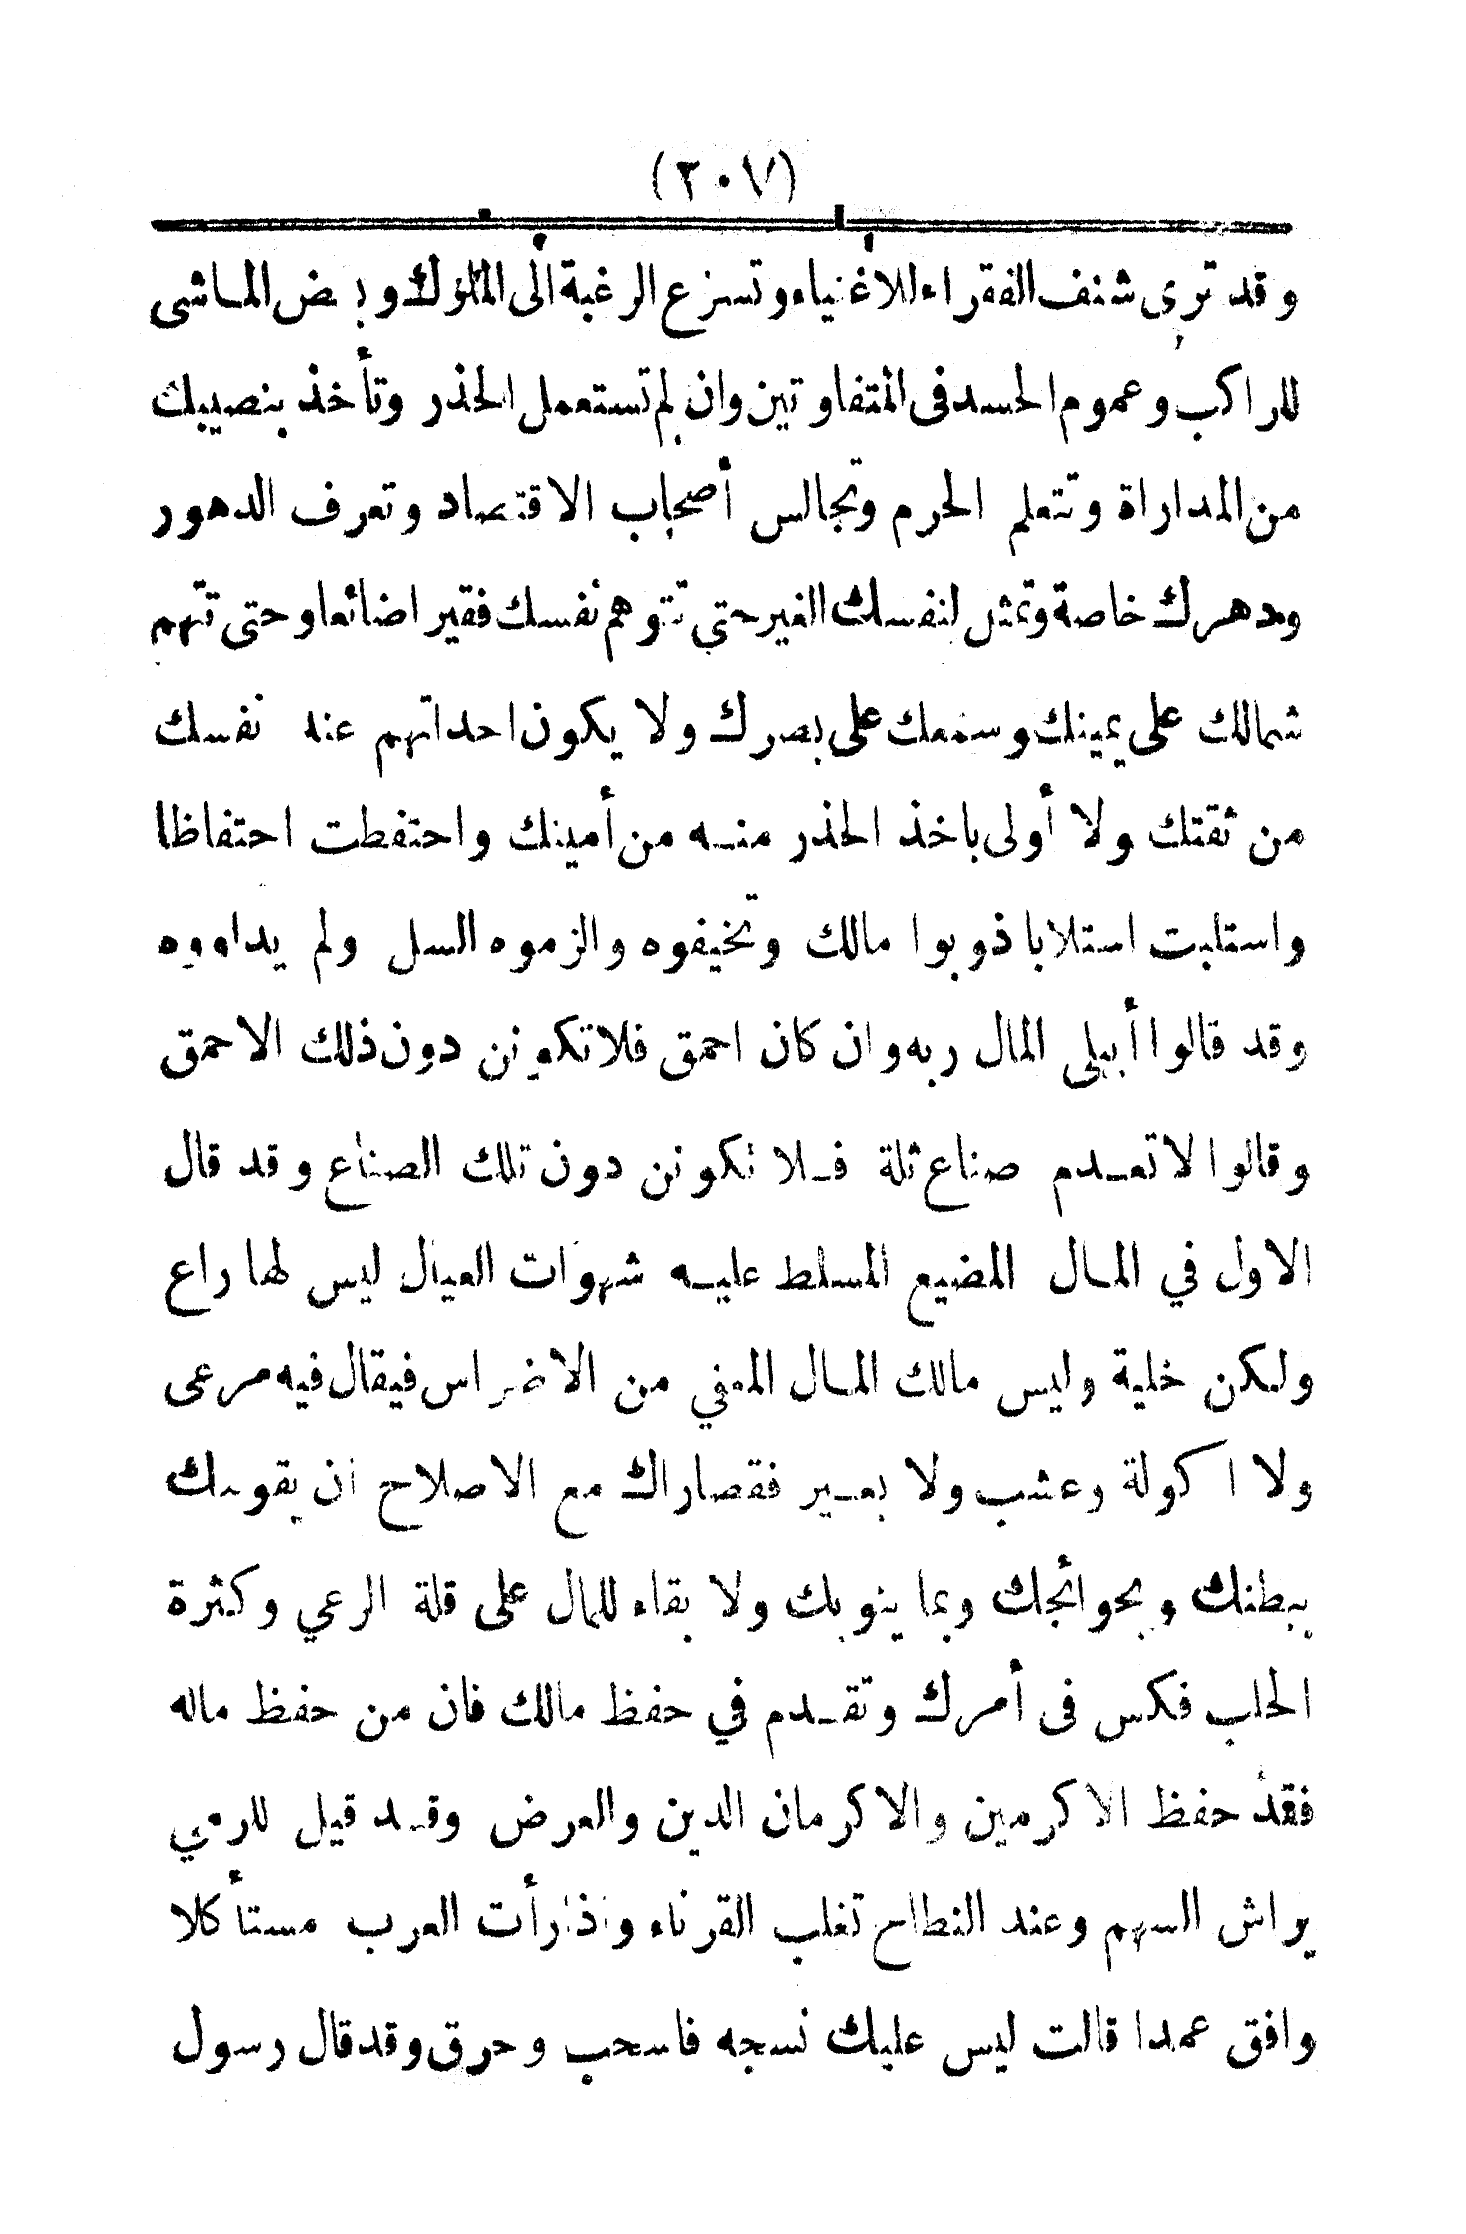 (٢٠٧)
وقد ترى شنف الفقراء للاغنياء وتسرع الرغبة الى الملوك وبغض الماشى
للراكب وعموم الحسد فى المتفاوتين وان لم تستعمل الحذر وتأخذ بنصيبك
من المداراة وتتعلم الحزم وتجالس أصحاب الاقتصاد وتعرف الدهور
ودهرك خاصة وتمثل لنفسك الغير حتى تتوهم نفسك فقيرا ضائعا وحتى تتهم
شمالك على يمينك وسمعك على بصرك ولا يكون احد اتهم عند نفسك
من ثقتك ولا أولى باخذ الحذر منه من أمينك واحتفطت احتفاظا
واستلبت استلابا ذوبوا مالك وتخيفوه والزموه السل ولم يداووه
وقد قالوا أبيلى المال ربه وان كان احمق فلا تكونن دون ذلك الاحمق
وقالوا لا تعدم صناع ثلة فلا تكونن دون تلك الصناع وقد قال
الاول في المال المضيع المسلط عليه شهوات العيال ليس لها راع
ولكن خلية وليس مالك المال المعفي من الاضراس فيقال فيه مرعى
ولا اكولة وعشب ولا بعير فقصاراك مع الاصلاح ان يقوم لك
ببطنك وبحوائجك وبما ينوبك ولا بقاء للمال على قلة الرعي وكثرة
الحلب فكس فى أمرك وتقدم في حفظ مالك فان من حفظ ماله
فقد حفظ الاكرمين والاكرمان الدين والعرض وقد قيل للرمي
يراش السهم وعند النطاح تغلب القرناء واذا رأت العرب مستأكلا
وافق عمدا قالت ليس عليك نسجه فاسحب وحرق وقد قال رسول